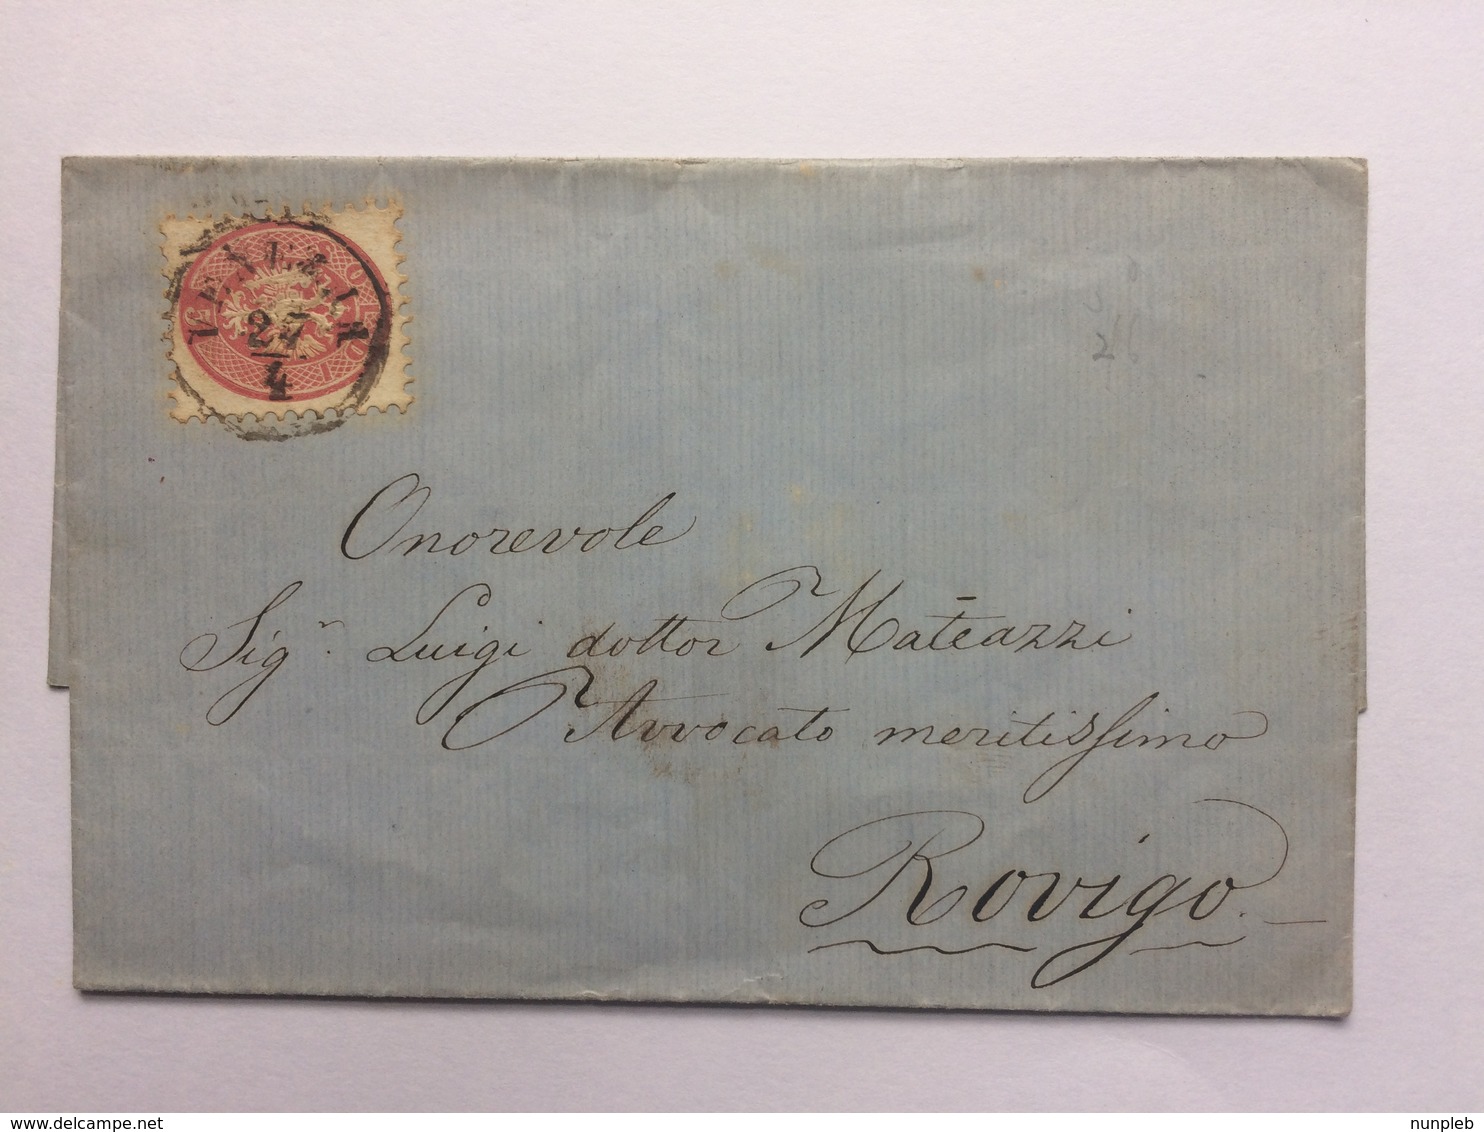 VENEZIA
27
4
5 SOLDI
Onorevole
Sig.r Luigi dottor Mateazzi
Avvocato meritissimo
Rovigo.
delcampe.net
nunpleb